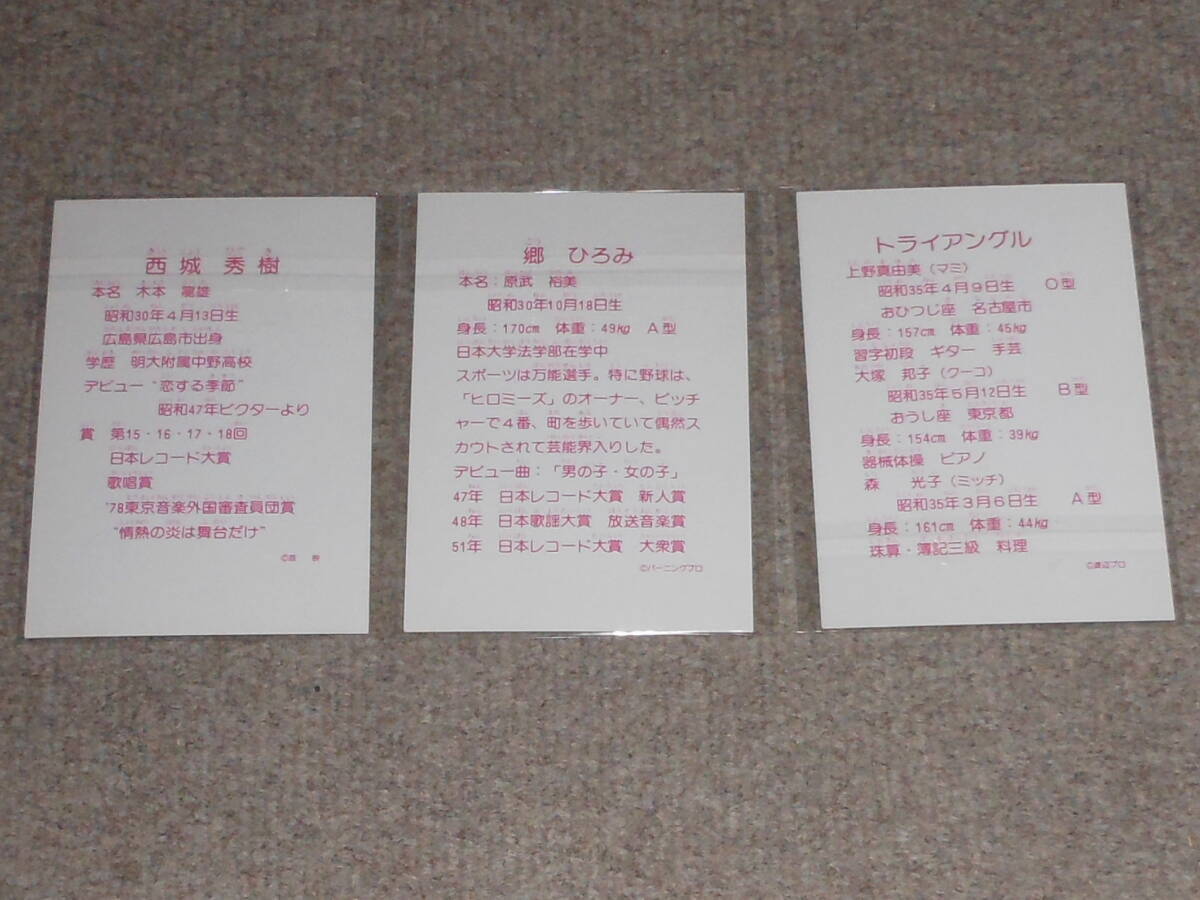 西城 秀樹
本名 木本 龍雄
昭和30年4月13日生
広島県広島市出身
学歴 明大附属中野高校
デビュー “恋する季節”
昭和47年ビクターより
賞 第15・16・17・18回
日本レコード大賞
歌唱賞
'78東京音楽外国審査員団賞
“情熱の炎は舞台だけ”
郷 ひろみ
本名：原武 裕美
昭和30年10月18日生
身長：170cm 体重：49kg A型
日本大学法学部在学中
スポーツは万能選手。特に野球は、
「ヒロミーズ」のオーナー、ピッチ
ャーで4番、町を歩いていて偶然ス
カウトされて芸能界入りした。
デビュー曲：「男の子・女の子」
47年 日本レコード大賞 新人賞
48年 日本歌謡大賞 放送音楽賞
51年 日本レコード大賞 大衆賞
©バーニングプロ
トライアングル
上野真由美（マミ）
昭和35年4月9日生 O型
おひつじ座 名古屋市
身長：157cm 体重：45kg
習字初段 ギター 手芸
大塚 邦子（クーコ）
昭和35年5月12日生 B型
おうし座 東京都
身長：154cm 体重：39kg
器械体操 ピアノ
森 光子（ミッチ）
昭和35年3月6日生 A型
身長：161cm 体重：44kg
珠算・簿記三級 料理
©渡辺プロ